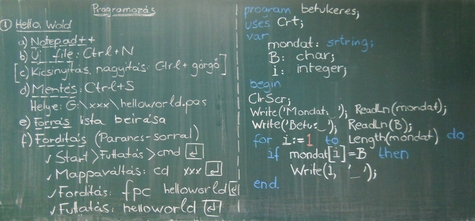 Programozás
① Hello, World
a) Notepad++
b) Új file: Ctrl+N
[c) Kicsinyítés, nagyítás: Ctrl+görgő]
d) Mentés: Ctrl+S
Helye: G:\xxx\helloworld.pas
e) Forrás lista beírása
f) Fordítás (Parancs-sorral)
✓ Start > Futtatás > cmd
✓ Mappaváltás: cd xxx
✓ Fordítás: fpc helloworld
✓ Futtatás: helloworld
program betukeres;
uses Crt;
var
mondat: srtring;
B: char;
i: integer;
begin
ClrScr;
Write('Mondat: '); ReadLn(mondat);
Write('Betu: '); ReadLn(B);
for i:=1 to Length(mondat) do
if mondat[i]=B then
Write(i, '_');
end.